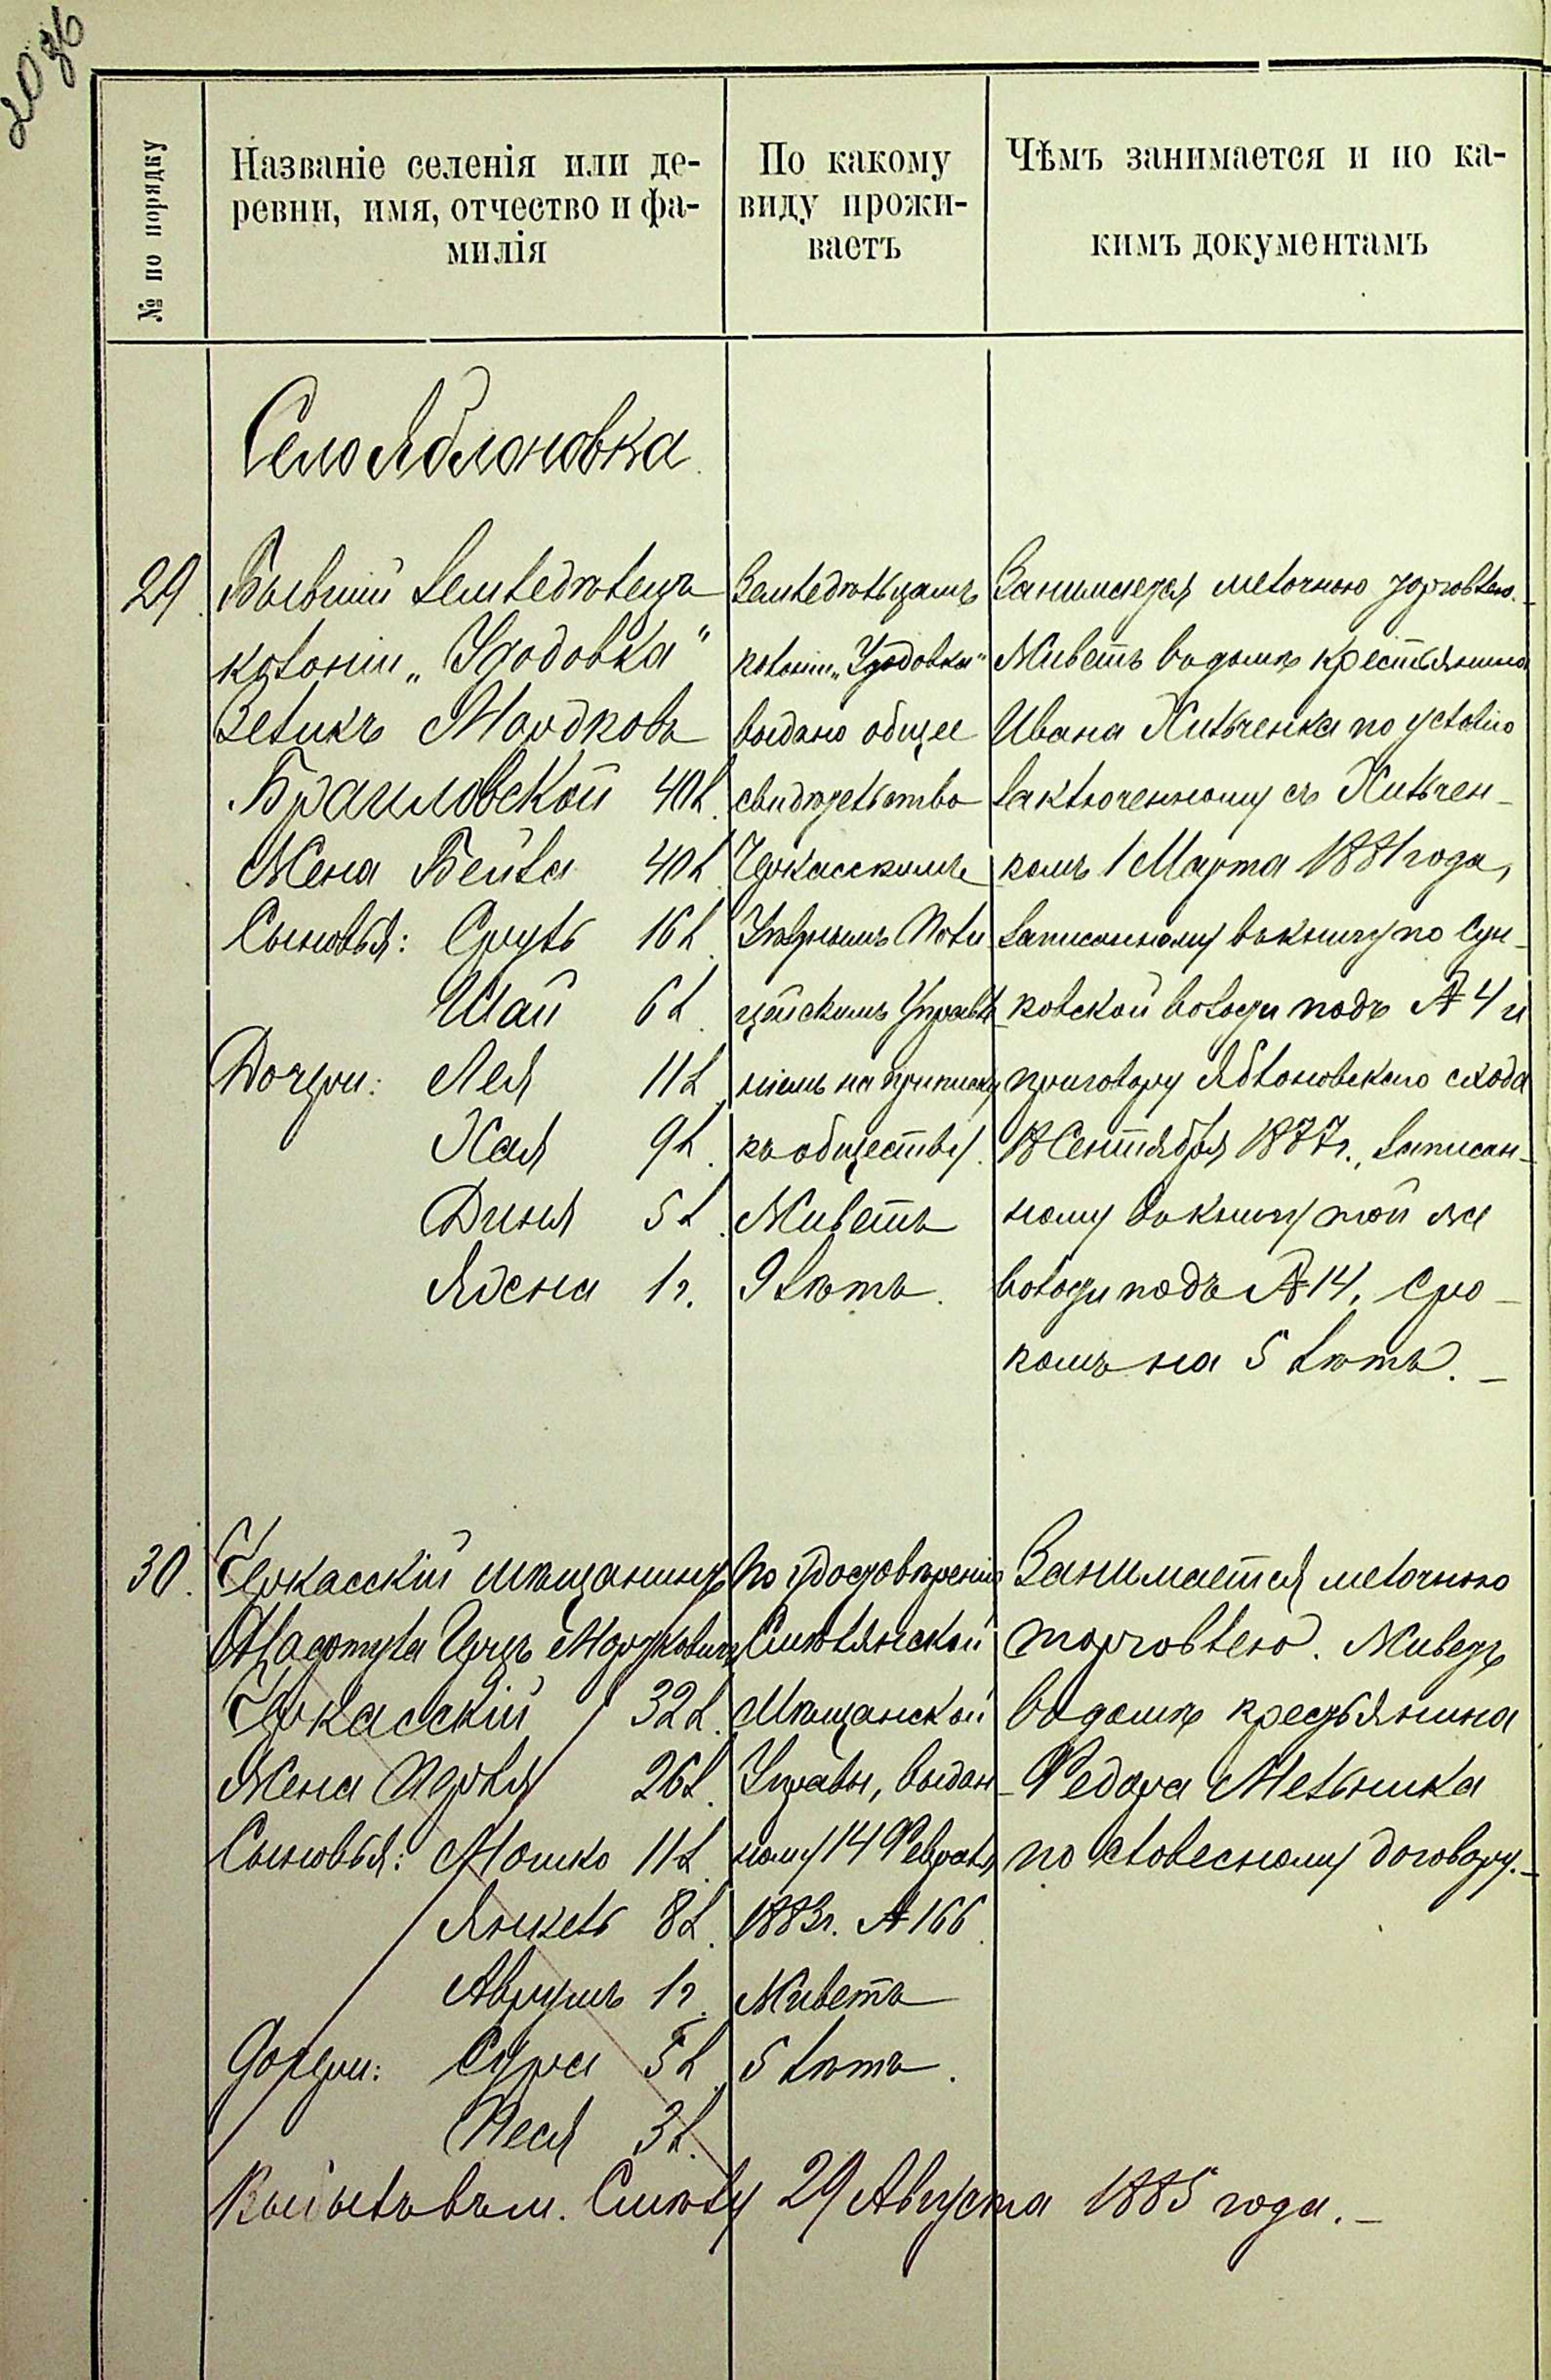 20 об
№ по порядку
Названіе селенія или де-
ревни, имя, отчество и фа-
милія
По какому
виду прожи-
ваетъ
Чѣмъ занимается и по ка-
кимъ документамъ
Село Яблоновка
29.
Бывшій земледѣлецъ
колоніи „Удодовка"
Зеликъ Мордковъ
Браиловской 40 л.
Жена Бейла 40 л.
Сыновья: Сруль 16 л.
Шай 6 л.
Дочери: Лея 11 л.
Хая 9 л.
Диня 5 л.
Ядена 1 г.
Земледѣльцамъ
колоніи „Удодовка"
выдано общее
свидѣтельство
Черкасскимъ
Уѣзднымъ Поли
цейскимъ Управле
ніемъ на приписку
къ обществу.
Живетъ
9 лѣтъ.
Занимается мелочною торговлею.–
Живетъ въ домѣ крестьянина
Ивана Хильченка по условію
заключенному съ Хильчен-
комъ 1 Марта 1881 года,
записанному въ книгу по Сун-
ковской волости подъ № 4 и
приговору Яблоновскаго схода
18 Сентября 1877 г., записан-
ному въ книгу той же
волости подъ № 14, сро-
комъ на 5 лѣтъ.–
30.
Черкасскій мѣщанинъ
Герцъ Мордковичъ
Черкасскій 32 л.
Жена Перля 26 л.
Сыновья: Мошко 11 л.
Янкель 8 л.
Аврумъ 1 г.
Дочери: Сура 5 л.
Песя 3 л.
По удостовѣренію
Смѣлянской
Мѣщанской
Управы, выдан-
ному 14 Февраля
1883 г. № 166.
Живетъ
5 лѣтъ.
Занимается мелочною
торговлею. Живетъ
въ домѣ крестьянина
Федора Мельника
по словесному договору.–
Выбылъ въ м. Смѣлу 29 Августа 1885 года.–